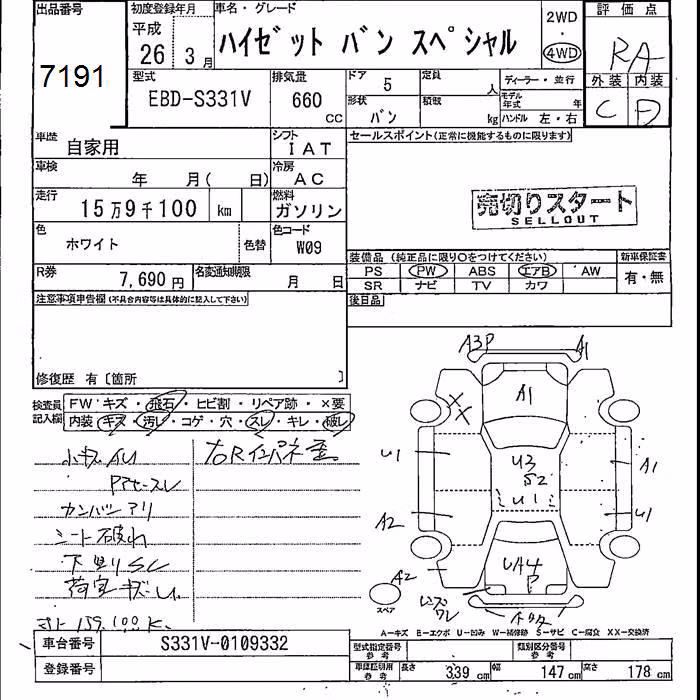 出品番号
7191
初度登録年月
平成
26年 3月
車名・グレード
ハイゼット バン スペシャル
2WD
・
4WD
評価点
RA
外装 内装
C D
型式
EBD-S331V
排気量
660
CC
ドア 5
形状 バン
定員 人
積載 kg
ディーラー・並行
モデル年式 年
ハンドル 左・右
車歴 自家用
シフト IAT
セールスポイント(正常に機能するものに限ります)
車検 年 月( 日)
冷房 AC
走行 15万9千100 km
燃料 ガソリン
売切りスタート
SELLOUT
色 ホワイト
色替
色コード W09
装備品(純正品に限り○をつけてください)
新車保証書
PS PW ABS エアB AW
SR ナビ TV カワ
有・無
R券 7,690円
名変通知期限 月 日
後日品
注意事項申告欄(不具合内容等は具体的に記入して下さい)
修復歴 有〔箇所 〕
検査員記入欄
FW キズ・飛石・ヒビ割・リペア跡・×要
内装 キズ・汚レ・コゲ・穴・スレ・キレ・破レ
小キズ AU
右Rインパネ歪
カンバンアリ
シート破れ
下廻りSC
荷室キズ U
159,100K
A3P A1
A1
X X
U1
A2
U3
S2
U1
A1
U1
UA4
P
A2
スペア
A-キズ E-エクボ U-凹み W-補修跡 S-サビ C-腐食 XX-交換済
車台番号 S331V-0109332
登録番号
型式指定番号 参考
類別区分番号 参考
車庫証明用 参考 長さ 339 cm 幅 147 cm 高さ 178 cm